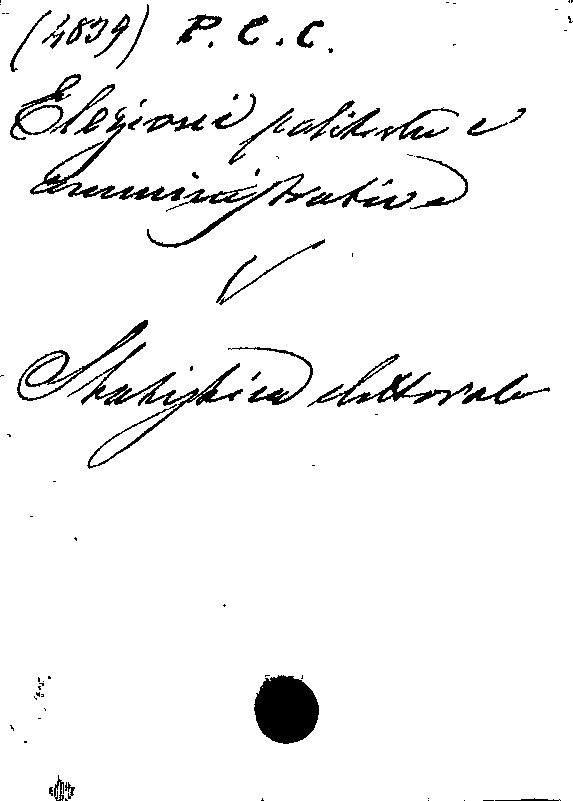 (4839) P. C. C.
Elezioni politiche e
amministrative
V
Statistica elettorale